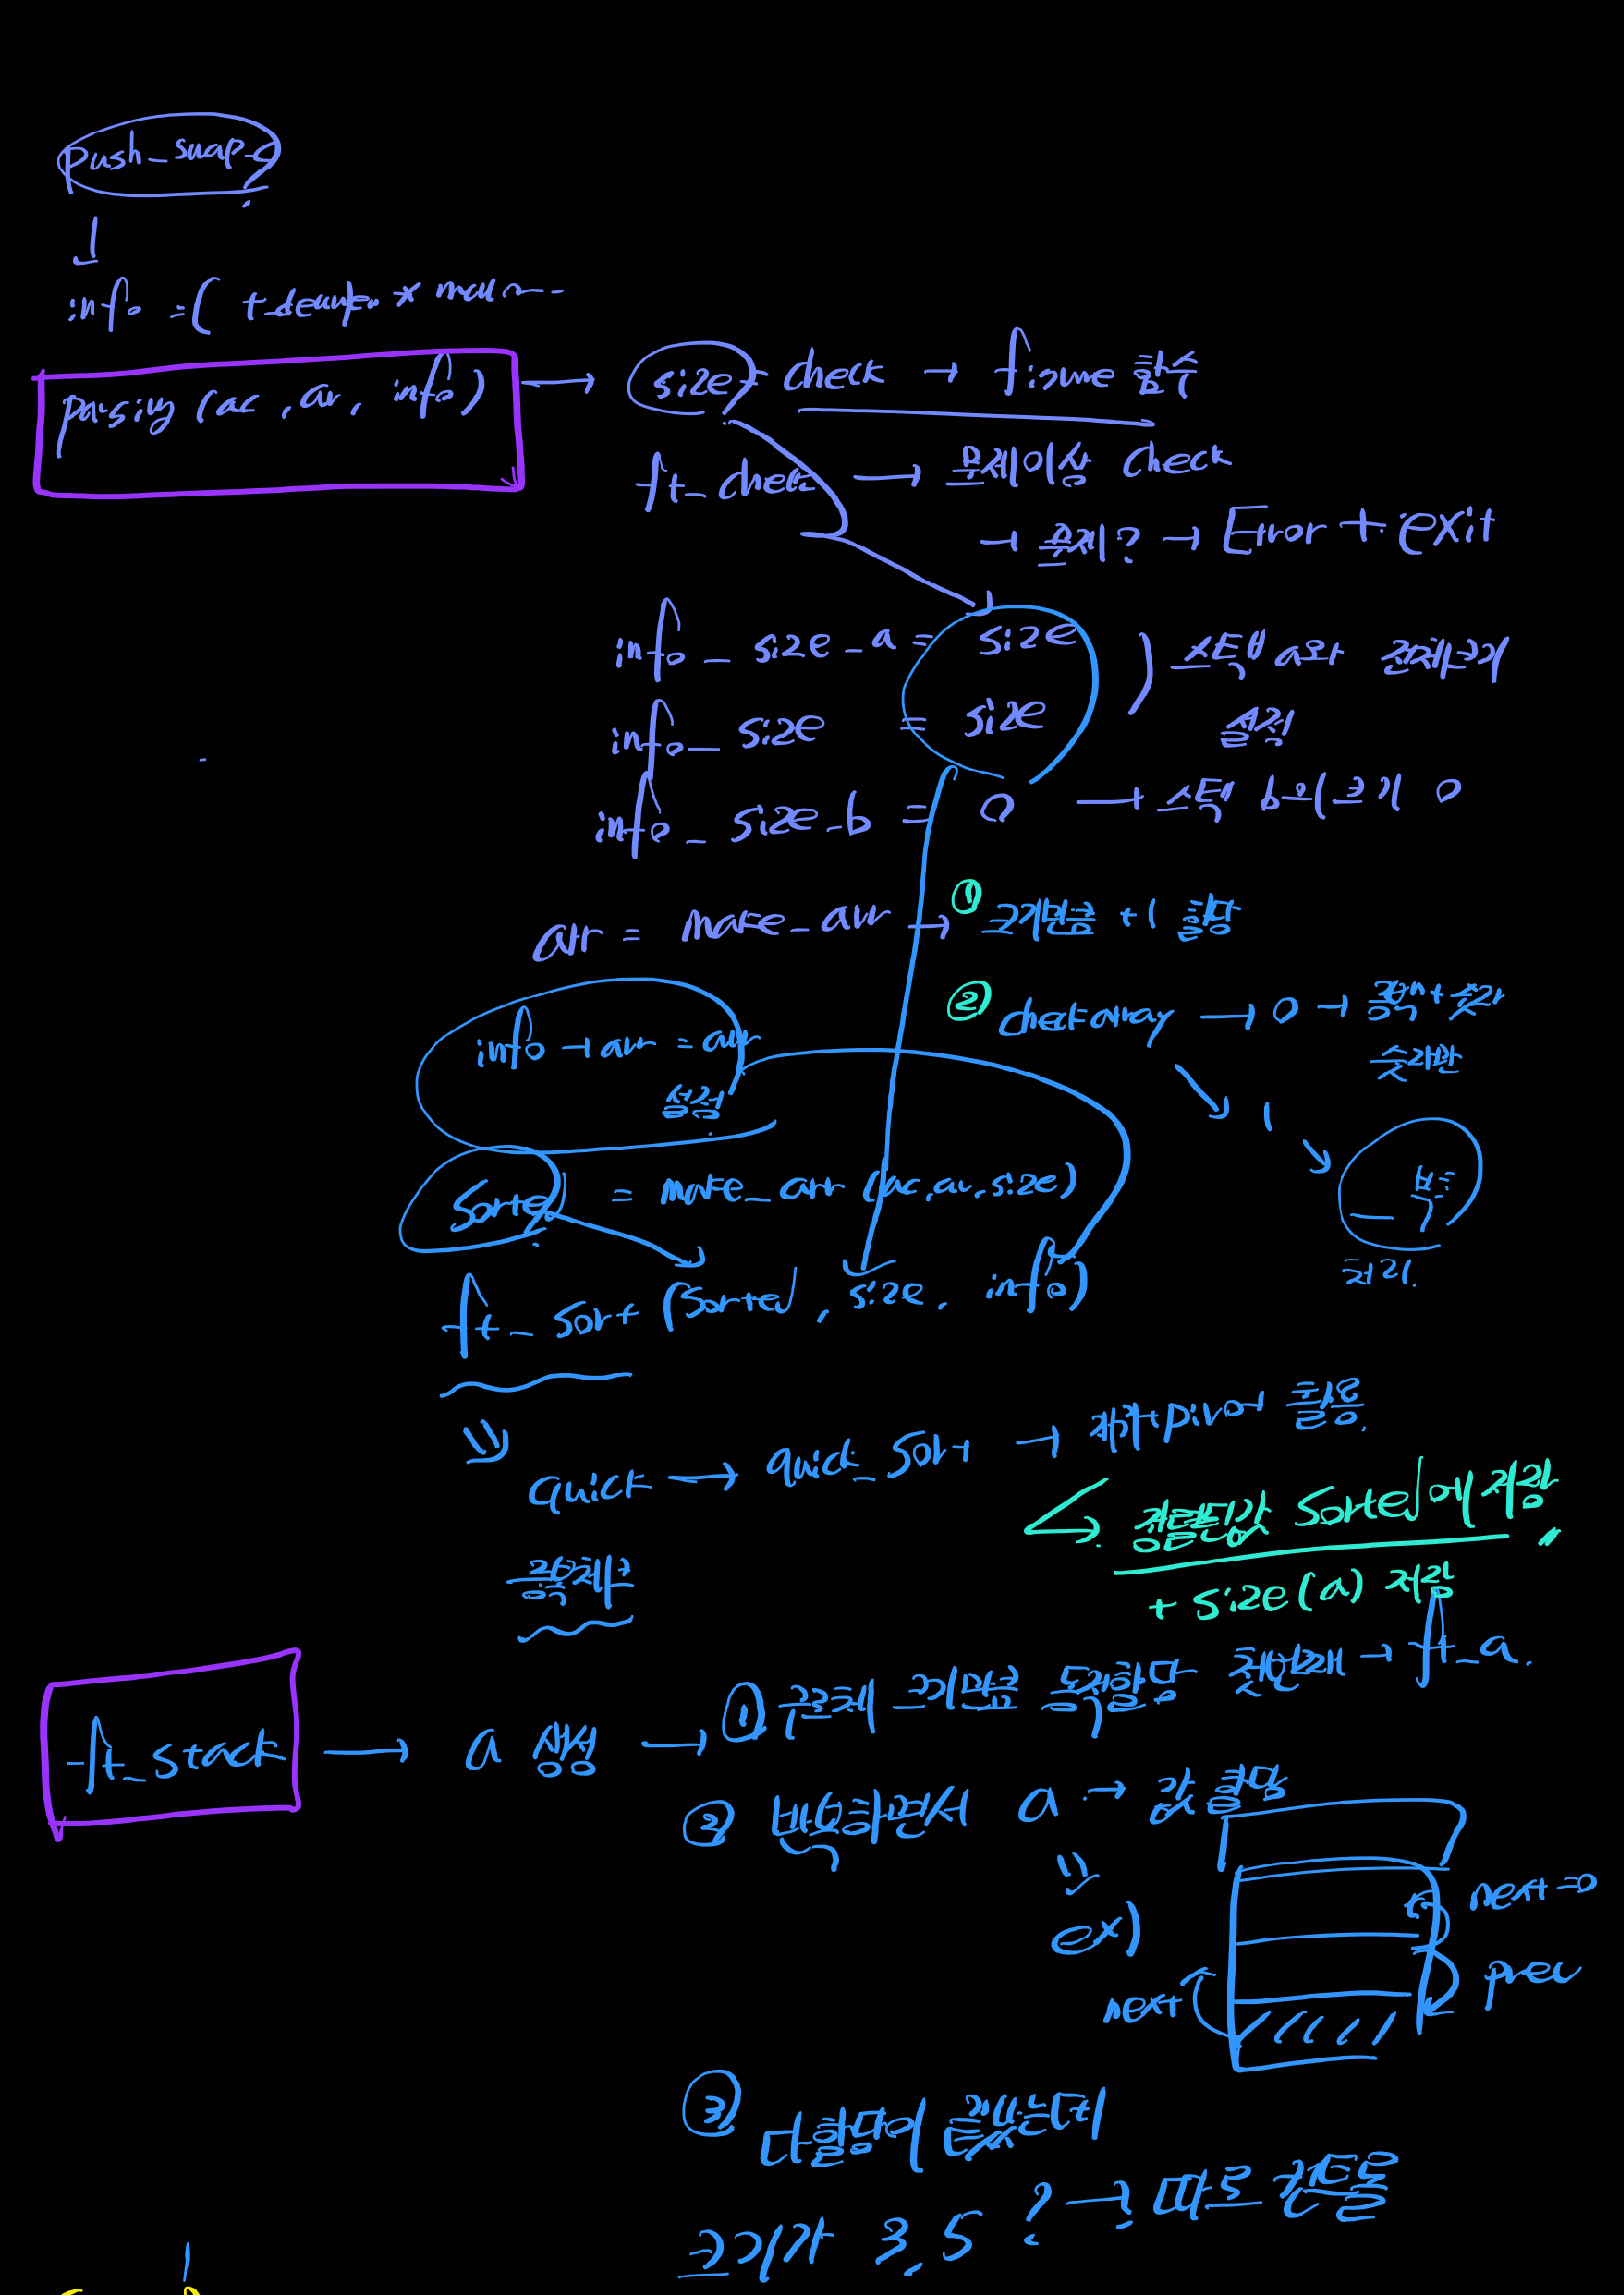 push_swap.c
info = ( t_ * mal...
parsing (ac, av, info) → size = check → 함수
ft_check → 문제이상 check
→ 문제? → Error + exit
info_size_a = size
info_size = size ) 스택 a와 전체크기 설정
info_size_b = 0 → 스택 b의 크기 0
arr = make_arr → ① 크기만큼 +1 할당
② checkarray → 0 → 공백 + 숫자
숫자만
↘ 1 ↘
info → arr = arr
설정
_ 복
처리.
Sorted = make_arr (ac, av, size)
ft_sort (Sorted, size, info)
quick → quick_sort → 재귀 + pivot 활용
정렬된값 Sorted에 저장
중복체크
+ size(a) 저장
ft_stack → a 생성 → ① 구조체 크기만큼 동적할당 첫번째 → ft_a.
② 반복하면서 a → 값 할당
ex)
next = 0
prev
next
③ 다 할당이 됐는데
크기가 3, 5 ? → 따로 컨트롤